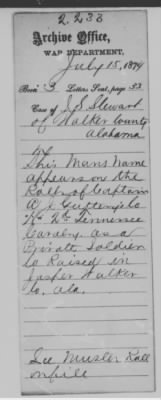 2.233
Archive Office,
WAR DEPARTMENT,
July 15, 1874
Box 3 Letters Sent, page 53
Case of J. S. Stewart
of Walker County
Alabama
This Mans Name
appears on the
Rolls of Captain
A.
Co K. Tennessee
Cavalry as a
Private Soldier
Co Raised in
Jasper Walker
Co. Ala.
See Muster Roll
on file